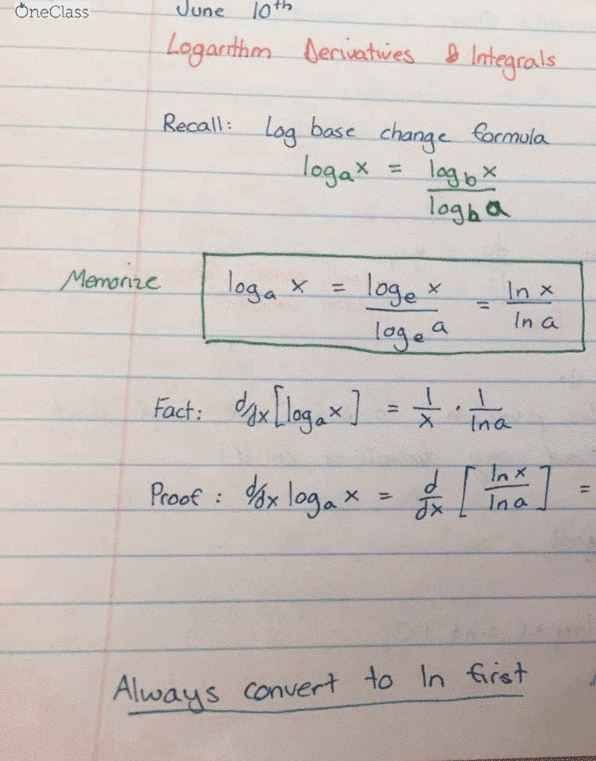 OneClass
June 10th
Logarithm Derivatives & Integrals
Recall: Log base change formula
logₐ x = log_b x / log_b a
Memorize logₐ x = logₑ x / logₑ a = ln x / ln a
Fact: d/dx [logₐ x] = 1/x · 1/ln a
Proof: d/dx logₐ x = d/dx [ ln x / ln a ] =
Always convert to ln first